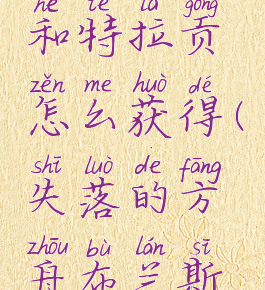 hé tè lā gòng
和特拉贡
zěn me huò dé
怎么获得(
shī luò de fāng
失落的方
zhōu bù lán sī
舟布兰斯